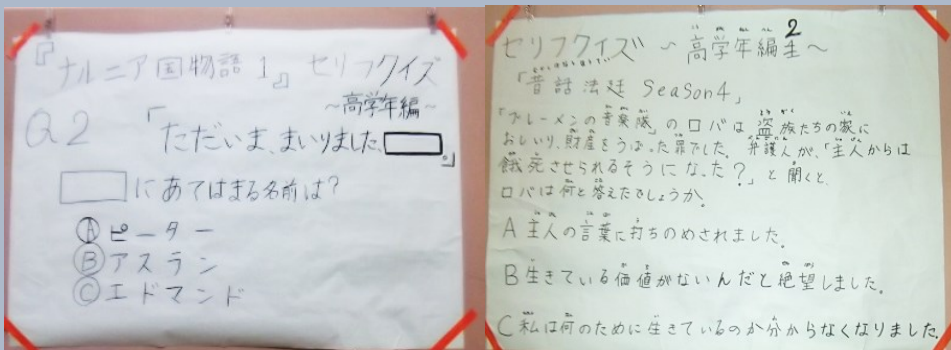 『ナルニア国物語1』セリフクイズ
~高学年編~
Q2 「ただいま、まいりました、
。」
にあてはまる名前は?
Ⓐピーター
Ⓑアスラン
Ⓒエドマンド
セリフクイズ ~高学年編2~
「昔話法廷 Season4」
「ブレーメンの音楽隊」のロバは盗族たちの家に
おしいり、財産をうばった罪でした。弁護人が、「主人からは
餓死させられるそうになった?」と聞くと、
ロバは何と答えたでしょうか。
A 主人の言葉に打ちのめされました。
B 生きている価値がないんだと絶望しました。
C 私は何のために生きているのか分からなくなりました。